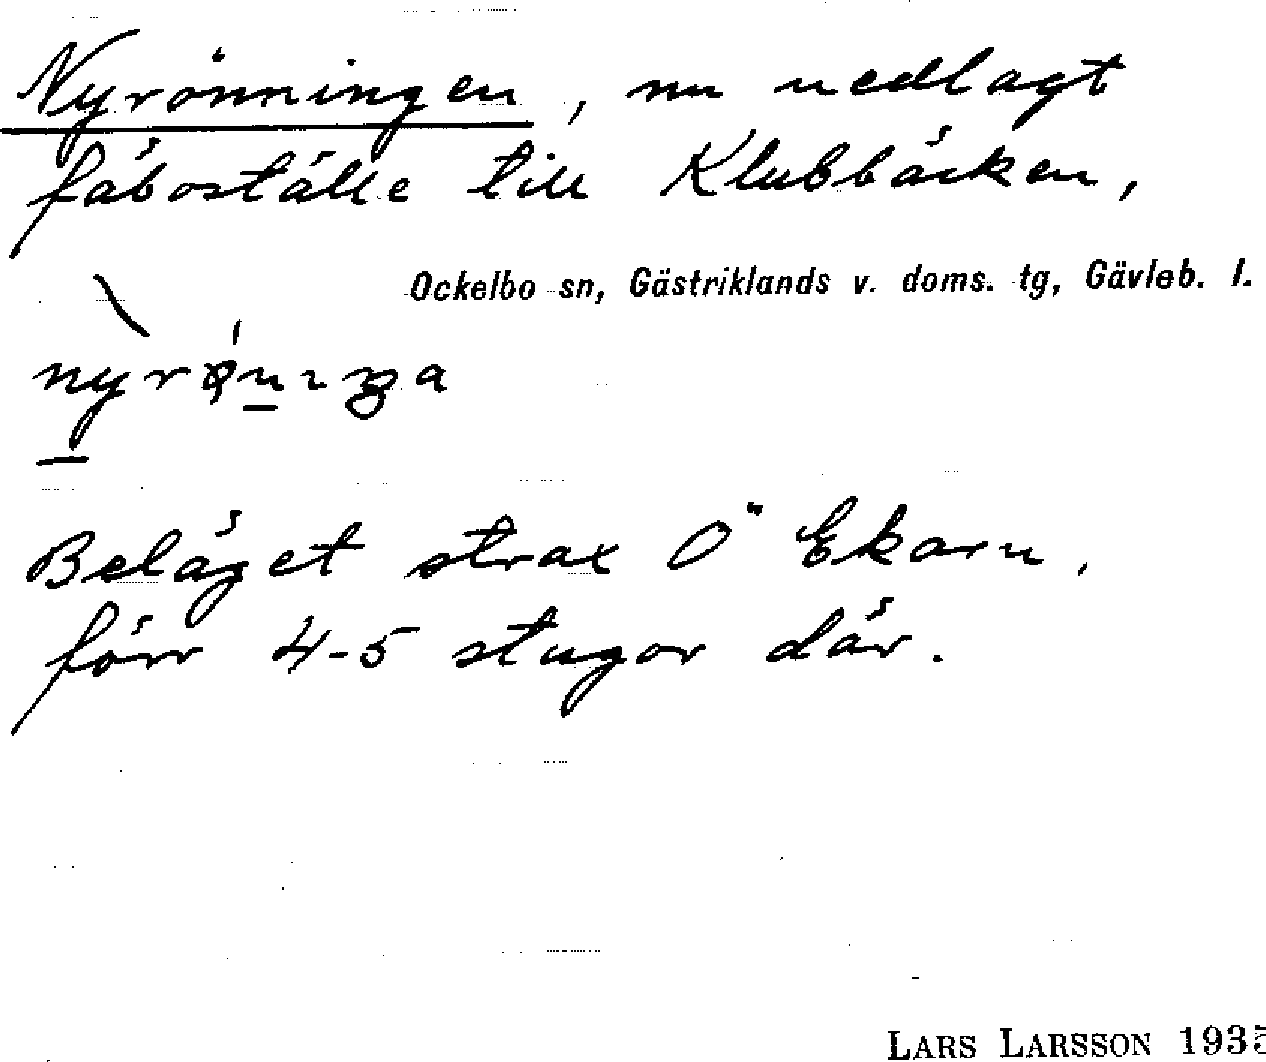 Nyrönningen, nu nedlagt
fäboställe till Klubbäcken,
Ockelbo sn, Gästriklands v. doms. tg, Gävleb. l.
Beläget strax Ö Ekarn,
förr 4-5 stugor där.
LARS LARSSON 1935